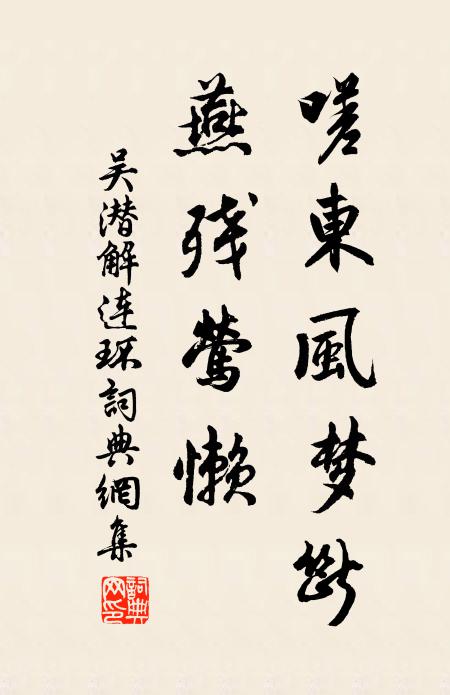 嗟東風梦断
燕残莺懒
吴潜解连环詞典網集
詞典网印